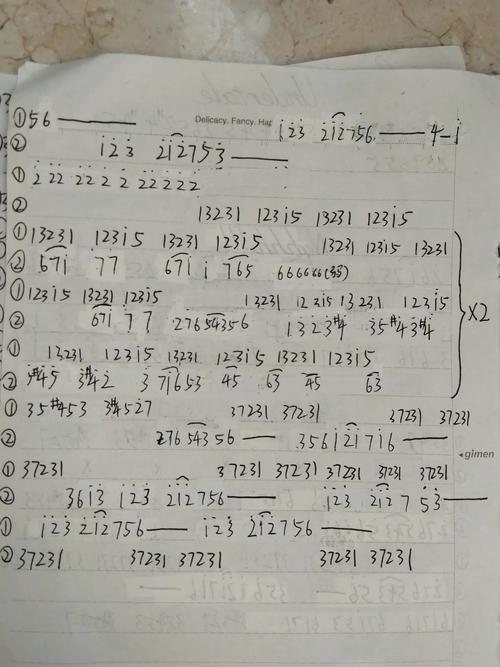 Delicacy. Fancy. Hap
① 56 —— i̇ 2̇ 3̇ 2̇i̇2̇756. —— 4-i̇
② i̇ 2̇ 3̇ 2̇i̇2̇753 ——
① 2̇ 2̇2̇ 2̇2̇ 2̇ 2̇ 2̇2̇2̇2̇2̇
② 13231 123i̇5 13231 123i̇5
① 13231 123i̇5 13231 123i̇5 13231 123i̇5 13231
② 67i̇ 77 67i̇ i̇ 765 666666
① 123i̇5 13231 123i̇5 13231 123i̇5 13231 123i̇5
② 67i̇ 7 7 27654356 1323#4 35#43#4 X2
① 13231 123i̇5 13231 123i̇5 13231 123i̇5
② 3#45 3#42 3 71653 45 63 45 63
① 35#453 3#4527 37231 37231 37231 37231
② 27654356 —— 356i̇2̇i̇7i̇6 ——
gimen
① 37231 37231 37231 37231 37231 37231
② 36i̇3̇ i̇2̇3̇ 2̇i̇2̇756 —— i̇2̇3̇ 2̇i̇2̇ 7 53 ——
① i̇2̇3̇ 2̇i̇2̇756 —— i̇2̇3̇ 2̇i̇2̇756 ——
② 37231 37231 37231 37231 37231